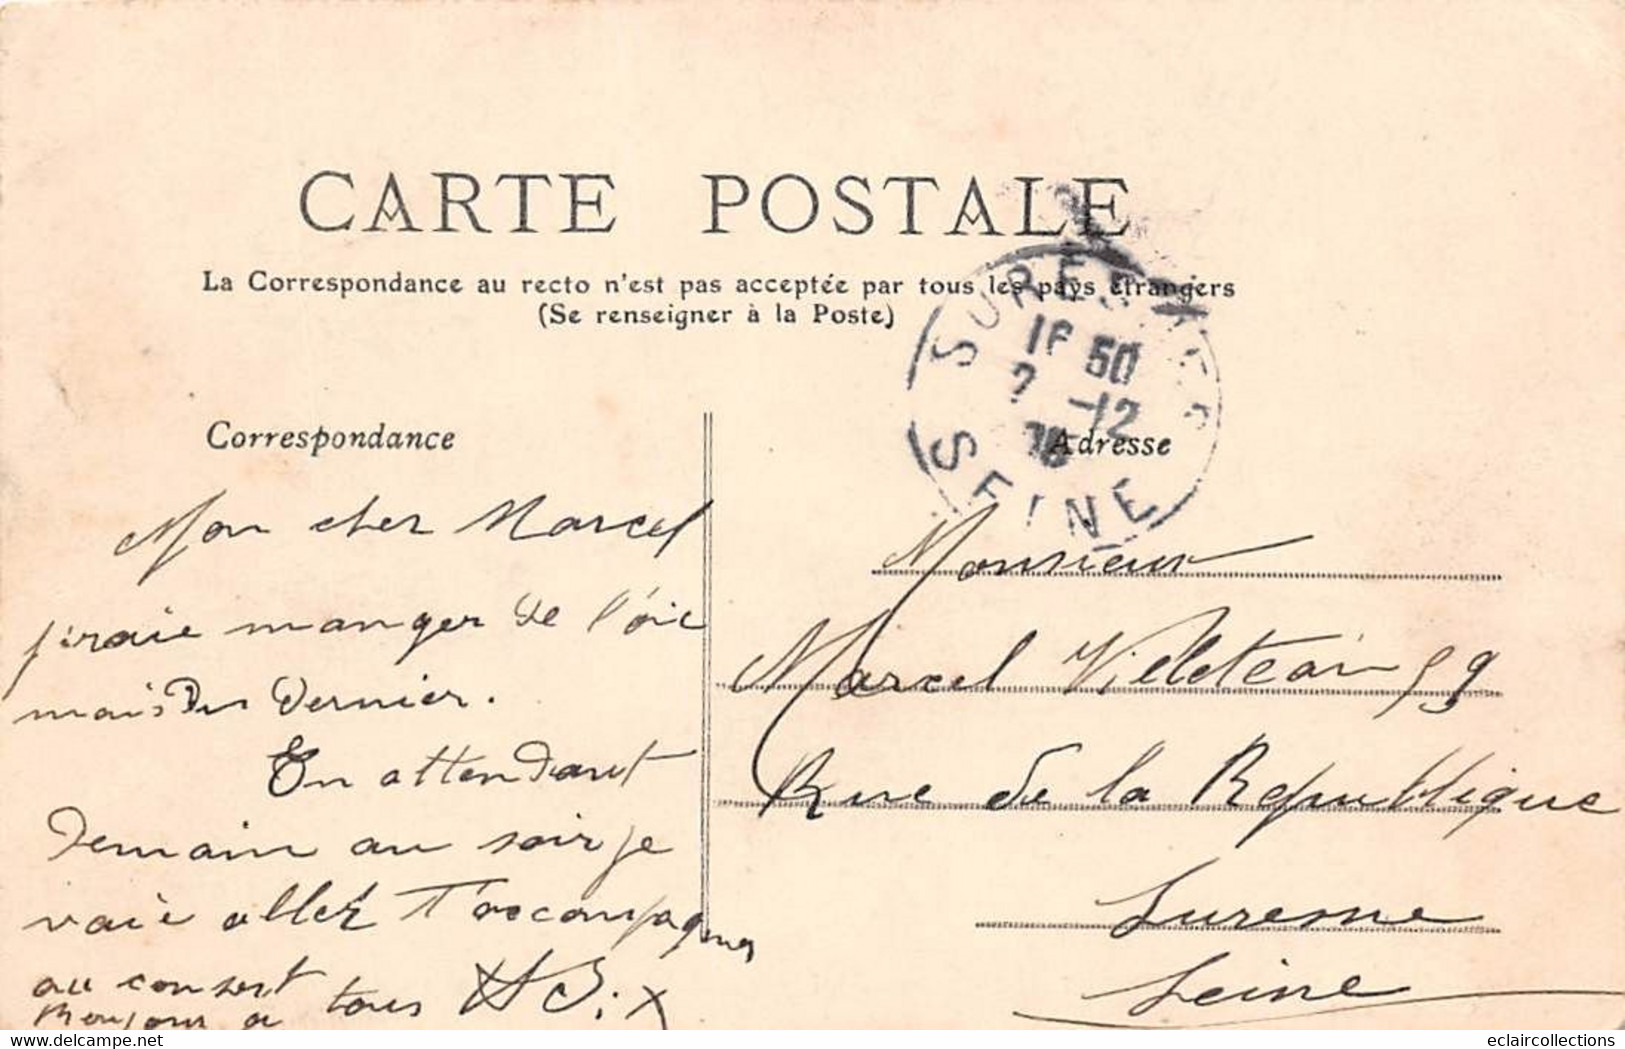 CARTE POSTALE
La Correspondance au recto n'est pas acceptée par tous les pays étrangers
(Se renseigner à la Poste)
SURESNES
50
7 -12
SEINE
Correspondance
Adresse
Mon cher Marcel
j'iraie manger de l'oie
mais Dernier.
En attendant
Demain au soir je
vaie allez t'accompagner
au consert
Bonjour a tous
Monsieur
Marcel 59
Rue de la Republique
Suresne
Seine
delcampe.net
eclaircollections